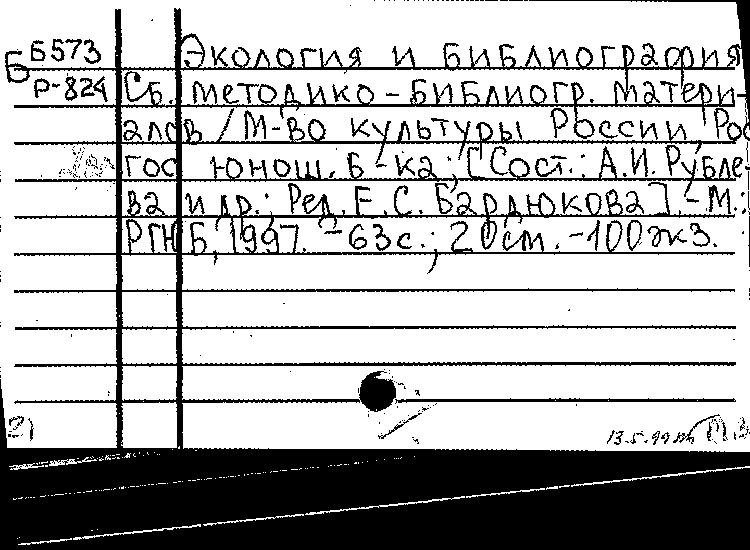 Б Б573
Р-824
Экология и библиография
Сб. методико-библиогр. матери-
алов / М-во культуры России, Рос
гос юнош. б-ка; [Сост.: А.И. Рубле-
ва и др.; Ред. Е.С. Бардюкова]. - М.:
РГЮБ, 1997. - 63с.; 20см. - 100экз.
21
13.5.99